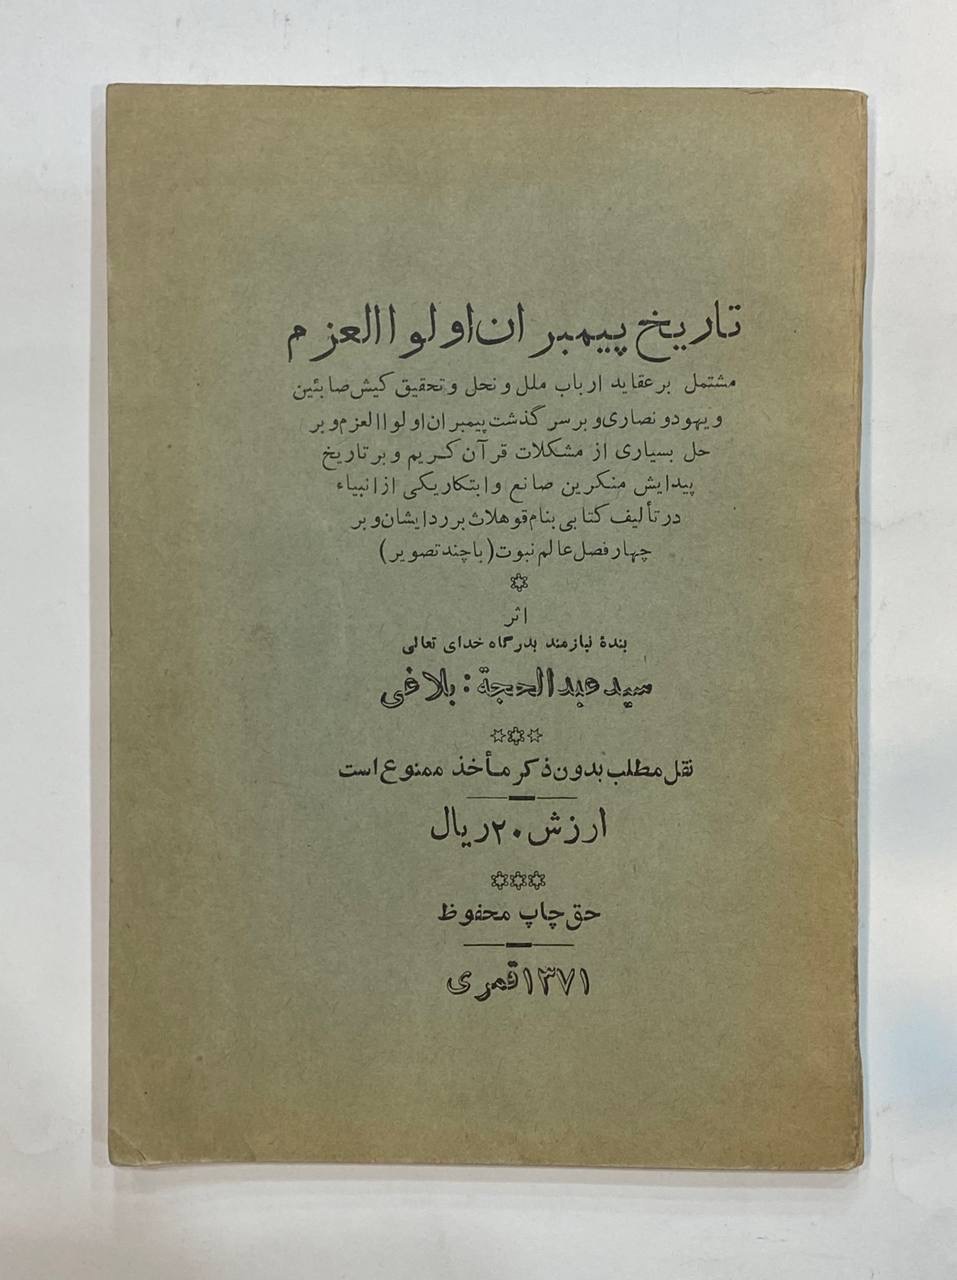 تاریخ پیمبران اولواالعزم
مشتمل بر عقاید ارباب ملل و نحل و تحقیق کیش صابئین
و یهود و نصاری و بر سر گذشت پیمبران اولواالعزم و بر
حل بسیاری از مشکلات قرآن کریم و بر تاریخ
پیدایش منکرین صانع و ابتکار یکی از انبیاء
در تألیف کتابی بنام قوهلاث بر رد ایشان و بر
چهار فصل عالم نبوت (با چند تصویر)
اثر
بندهٔ نیازمند بدرگاه خدای تعالی
سید عبدالحجة: بلاغی
نقل مطلب بدون ذکر مأخذ ممنوع است
ارزش ۲۰ ریال
حق چاپ محفوظ
۱۳۷۱ قمری